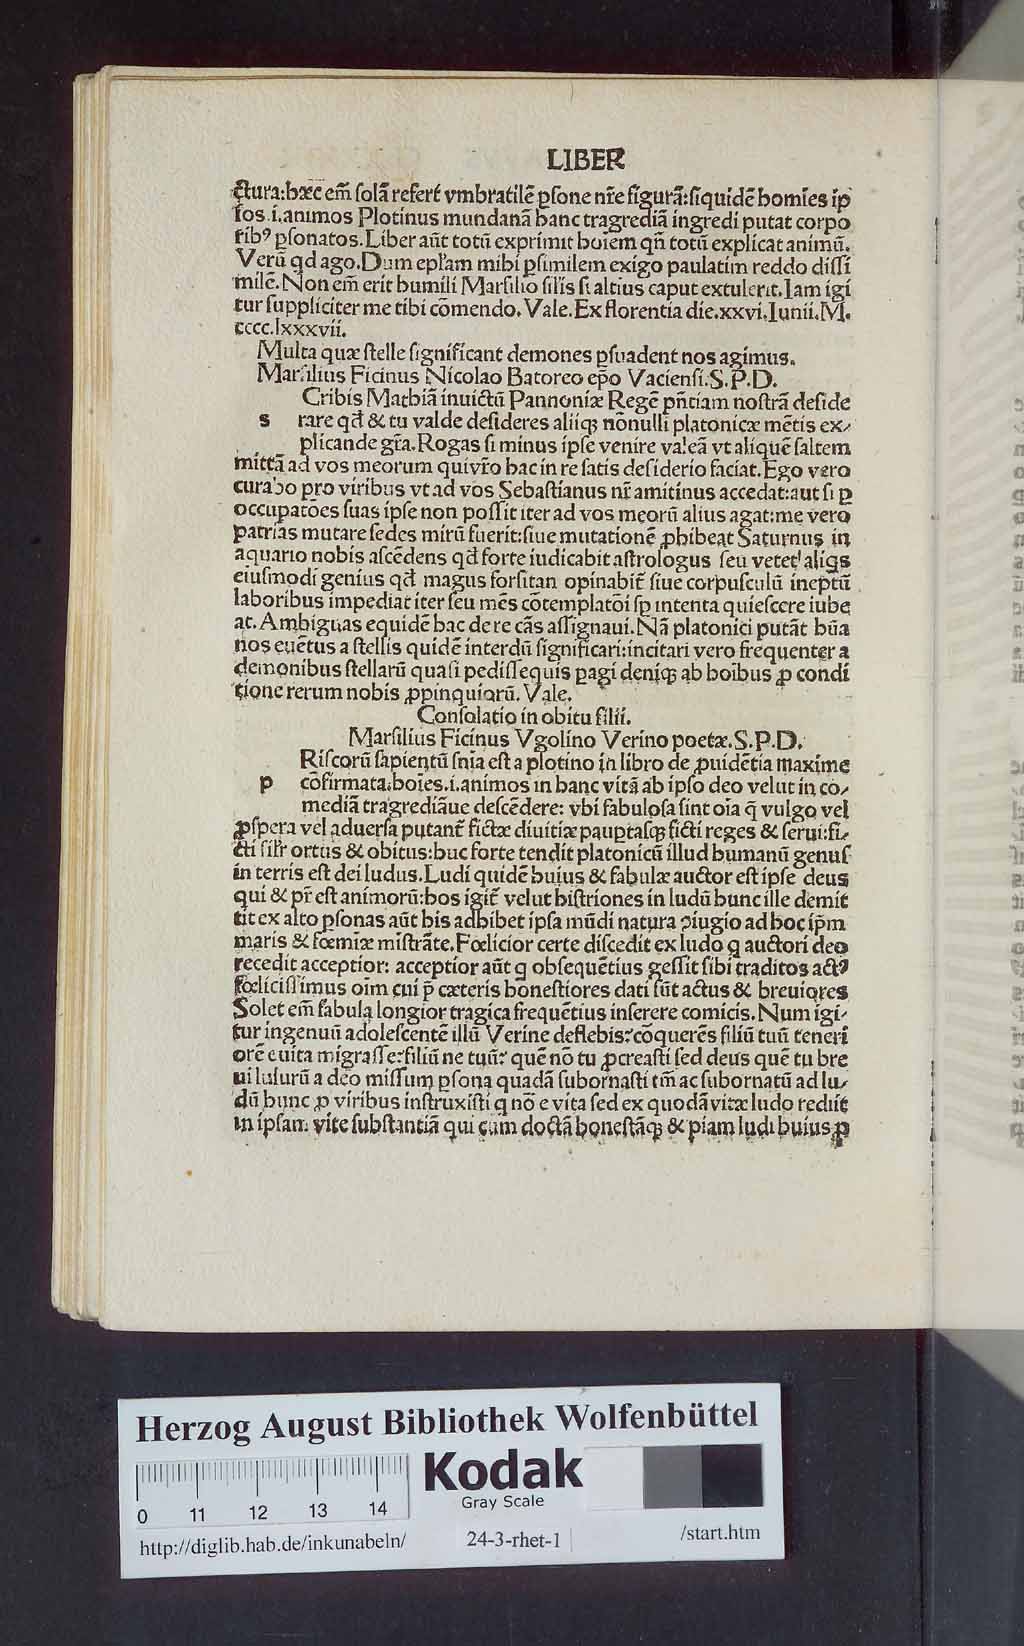 LIBER
ctura:hæc em̃ solã refert vmbratilẽ ꝑsone nr̃e figurã:siquidẽ homies ip
sos.i.animos Plotinus mundanã hanc tragrediã ingredi putat corpo
ribꝰ ꝑsonatos.Liber aũt totũ exprimit hoiem qñ totũ explicat animũ.
Verũ qd ago.Dum epl̃am mihi ꝑsimilem exigo paulatim reddo dissi
milẽ.Non em̃ erit humili Marsilio silis si altius caput extulerit.Iam igi
tur suppliciter me tibi cõmendo.Vale.Ex florentia die.xxvi.Iunii.M.
cccc.lxxxvii.
Multa quæ stelle significant demones ꝑsuadent nos agimus.
Marsilius Ficinus Nicolao Batoreo ep̃o Vaciensi.S.P.D.
Cribis Mathiã inuictũ Pannoniæ Regẽ pñtiam nostrã deside
s rare qđ & tu valde desideres aliiqꝫ nõnulli platonicæ mẽtis ex-
plicande gr̃a.Rogas si minus ipse venire valeã vt aliquẽ saltem
mittã ad vos meorum quivr̃o hac in re satis desiderio faciat.Ego vero
curabo pro viribus vt ad vos Sebastianus nr̃ amitinus accedat:aut si ꝑ
occupatões suas ipse non possit iter ad vos meorũ alius agat:me vero
patrias mutare sedes mirũ fuerit:siue mutationẽ ꝓhibeat Saturnus in
aquario nobis ascẽdens qđ forte iudicabit astrologus seu vetet aliqs
eiusmodi genius qđ magus forsitan opinabit̃ siue corpusculũ ineptũ
laboribus impediat iter seu mẽs cõtemplatõi sꝑ intenta quiescere iube
at.Ambiguas equidẽ hac de re cãs assignaui.Nã platonici putãt hũa
nos euẽtus a stellis quidẽ interdũ significari:incitari vero frequenter a
demonibus stellarũ quasi pedissequis ꝑagi deniqꝫ ab hoibus ꝓ condi
tione rerum nobis ꝓpinquiorũ.Vale.
Consolatio in obitu filii.
Marsilius Ficinus Vgolino Verino poetæ.S.P.D.
Riscorũ sapientũ snĩa est a plotino in libro de ꝓuidẽtia maxime
p cõfirmata:hoĩes.i.animos in hanc vitã ab ipso deo velut in co-
mediã tragrediãue descẽdere: vbi fabulosa sint oĩa q̃ vulgo vel
ꝓspera vel aduersa putant̃ fictæ diuitiæ pauꝑtasqꝫ ficti reges & serui:fi-
cti sil̃r ortus & obitus:huc forte tendit platonicũ illud humanũ genus
in terris est dei ludus.Ludi quidẽ huius & fabulæ auctor est ipse deus
qui & pr̃ est animorũ:hos igit̃ velut histriones in ludũ hunc ille demit
tit ex alto ꝑsonas aũt his adhibet ipsa mũdi natura ꝯiugio ad hoc ip̃m
maris & fœmiæ mĩstrãte.Fœlicior certe discedit ex ludo q auctori deo
recedit acceptior: acceptior aũt q obsequẽtius gessit sibi traditos actꝰ
fœlicissimus oĩm cui p̃ cæteris honestiores dati sũt actus & breuiores
Solet em̃ fabula longior tragica frequẽtius inserere comicis.Num igi-
tur ingenuũ adolescentẽ illũ Verine deflebis?cõquerẽs filiũ tuũ teneri
orẽ e uita migrasse?filiũ ne tuũ? quẽ nõ tu ꝓcreasti sed deus quẽ tu bre
ui lusurũ a deo missum ꝑsona quadã subornasti tm̃ ac subornatũ ad lu-
dũ hunc ꝓ viribus instruxisti q nõ e vita sed ex quodã vitæ ludo rediit
in ipsam vite substantiã qui cum doctã honestãqꝫ & piam ludi huius ꝑ
Herzog August Bibliothek Wolfenbüttel
Kodak
Gray Scale
0 11 12 13 14
http://diglib.hab.de/inkunabeln/ 24-3-rhet-1 /start.htm